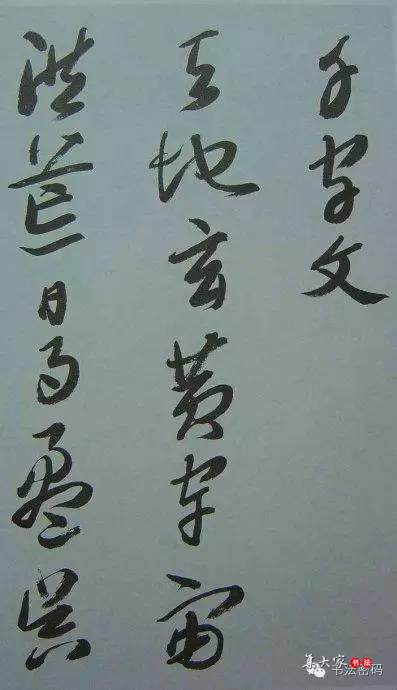 千字文
天地玄黄宇宙
洪荒日月盈昃
集大家书法
书法密码